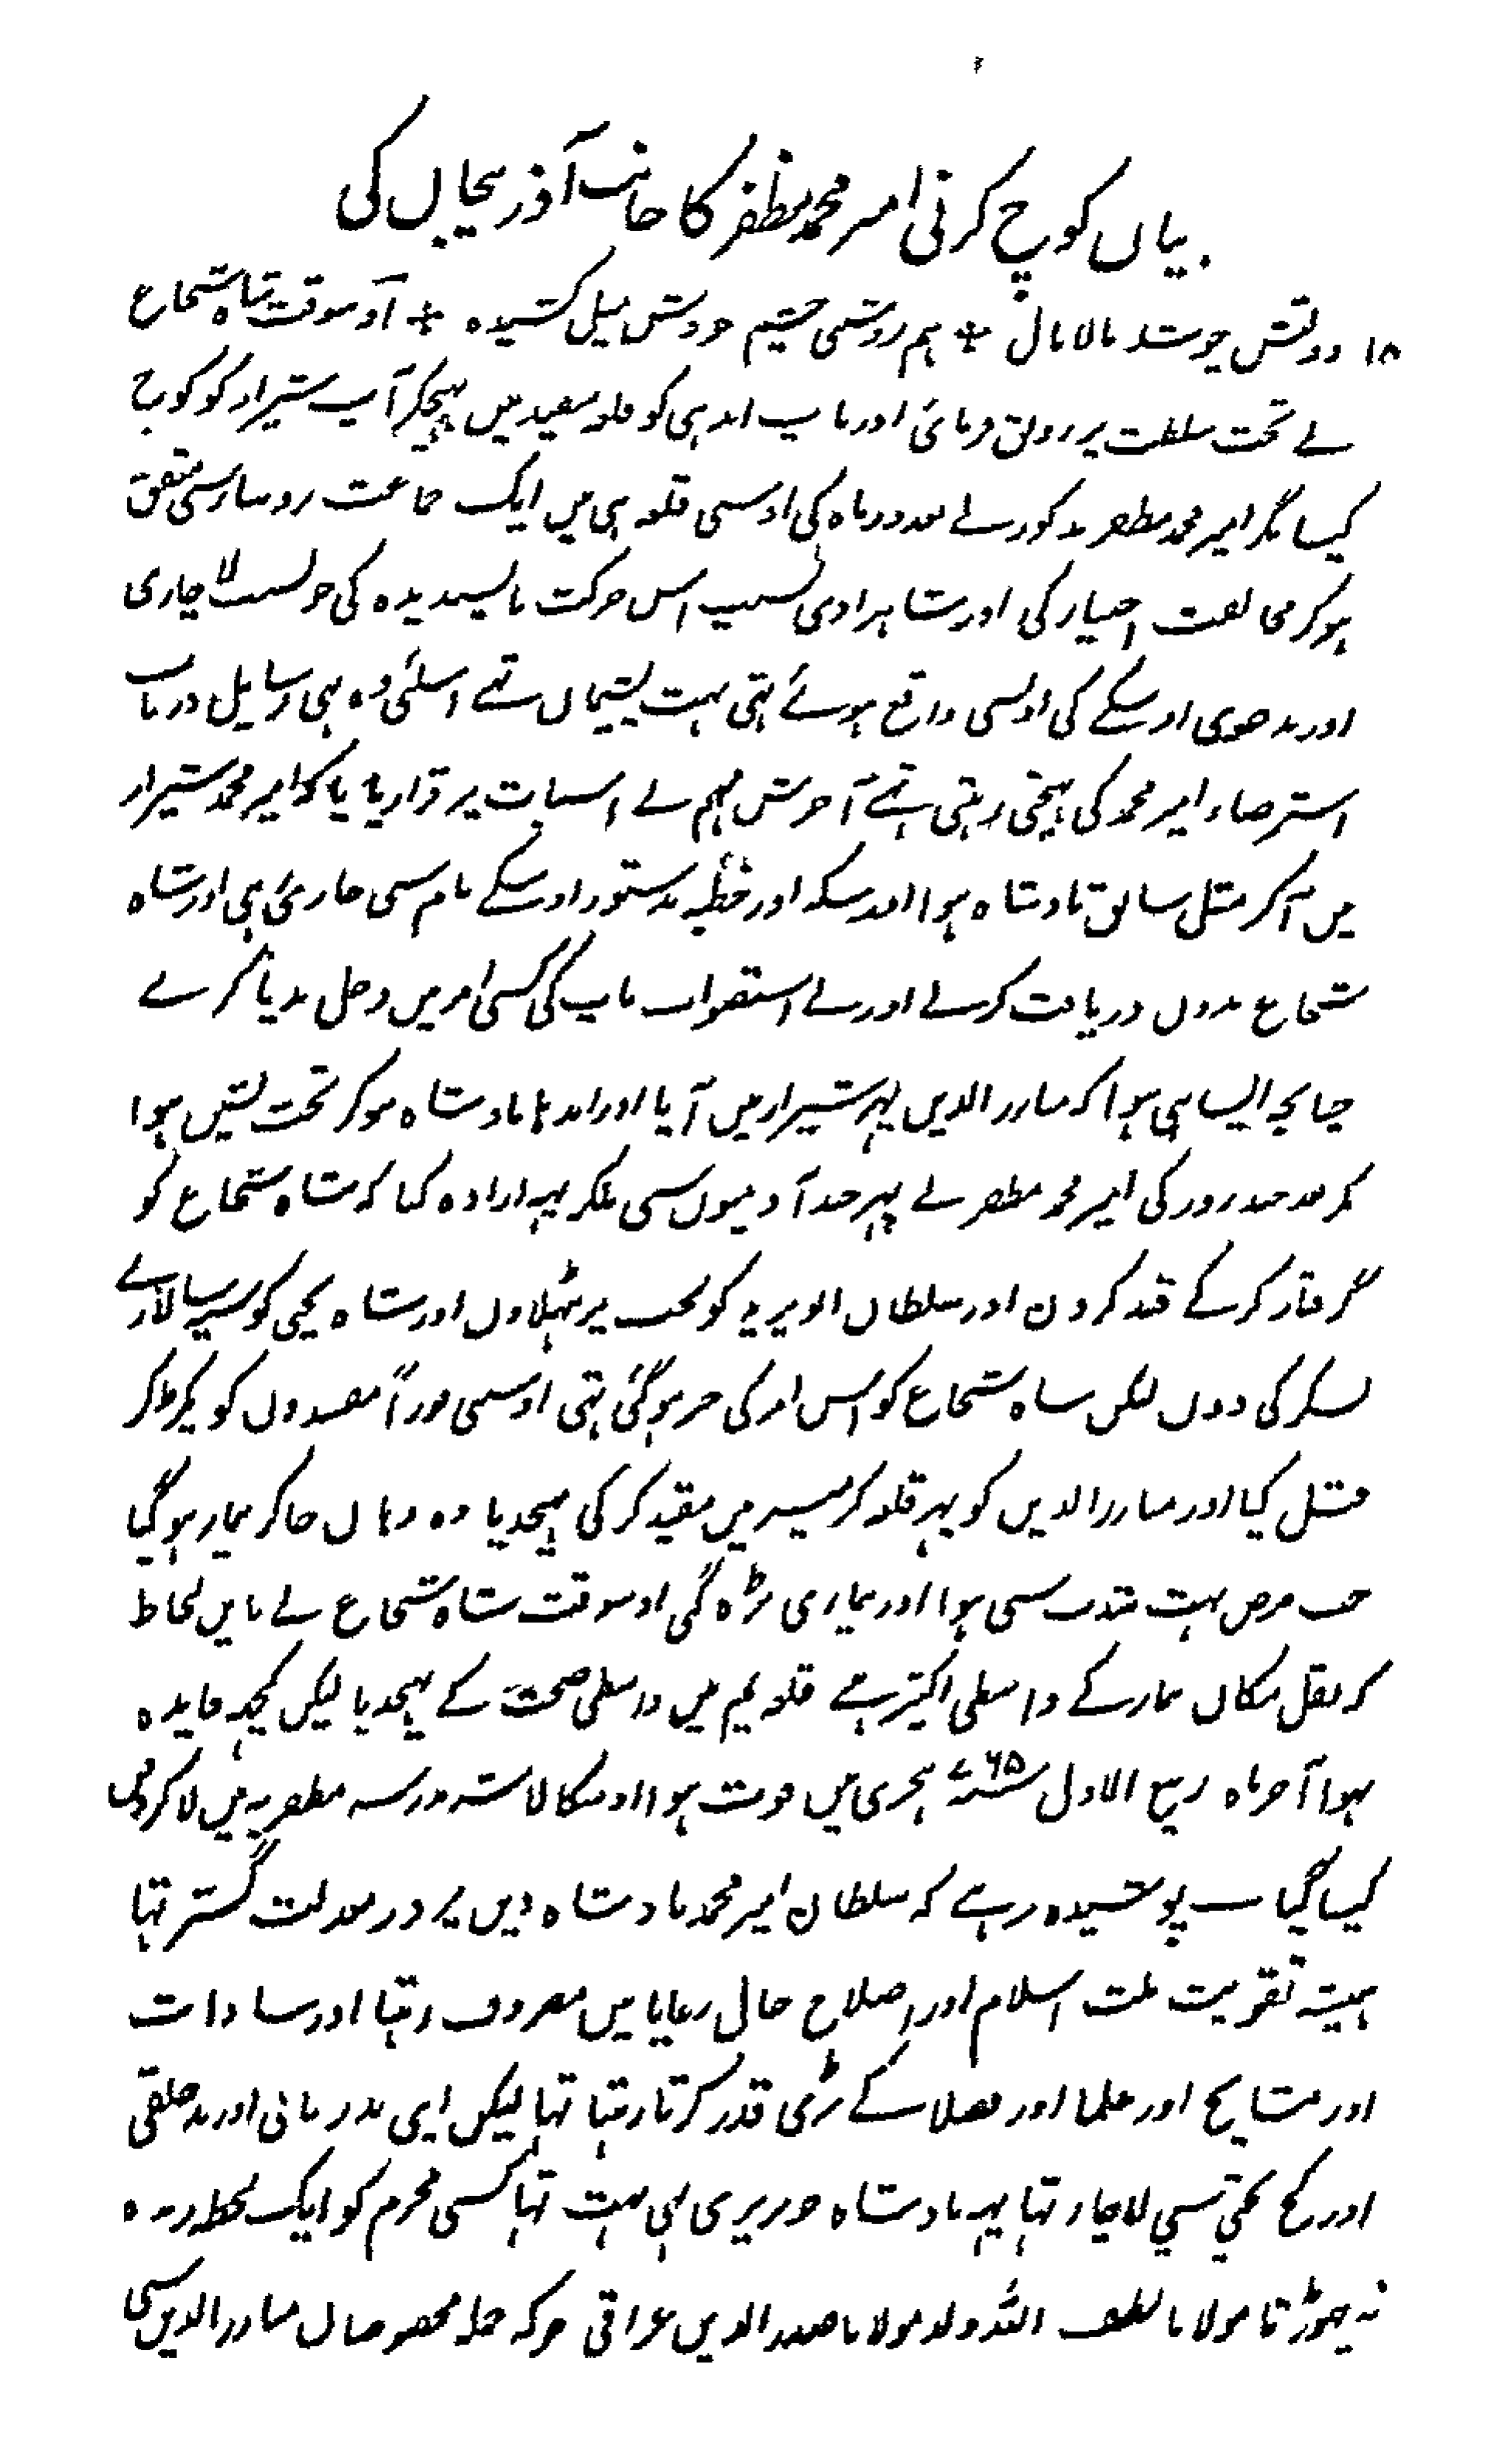 بیان کوچ کرنی امیر محمد مظفر کا جانب آذربیجان کی
۱۸ دولتش چو شد مالامال ÷ ہم روشنی چشم خودش میل کشیدہ ÷ اوسوقت شاہ شجاع
نے تخت سلطنت پر رونق فرمائی اور باپ اندہی کو قلعہ سفید میں بھیجکر آپ شیراز کو کوچ
کیا مگر امیر محمد مظفر مذکور نے بعد دو ماہ کی اوسی قلعہ ہی میں ایک جماعت روسا سی متفق
ہو کر مخالفت اختیار کی اور شاہزادی بسبب اس حرکت ناپسندیدہ کی جو بسبب لاچاری
اور بدخوی اوسکے کی اونسی واقع ہوئے تہی بہت پشیمان تھے اسلئی وہ ہی رسایل در باب
استرضاء امیر محمد کی بھیجتی رہتی تہے آخرش مہم نے اسبات پر قرار پایا کہ امیر محمد شیراز
میں آکر مثل سابق بادشاہ ہو اور سکہ اور خطبہ بدستور اوسکے نام سی جاری ہی اور شاہ
شجاع بدون دریافت کرنے اور بے استصواب باپ کی کسی امر میں دخل ندیا کرے
چنانچہ ایسا ہی ہوا کہ مبارز الدین پہر شیراز میں آیا اور اندہا بادشاہ ہوکر تخت نشین ہوا
کر بعد چند روز کی امیر محمد مظفر نے پہر چند آدمیوں سی ملکر یہہ ارادہ کیا کہ شاہ شجاع کو
گرفتار کرکے قید کردن اور سلطان ابو یزید کو تخت پر بٹہلاون اور شاہ یحیی کو سپہ سالارے
لشکر کی دون لیکن شاہ شجاع کو اس امر کی خبر ہوگئی تہی اوسی فوراً مفسدون کو پکڑ کر
قتل کیا اور مبارز الدین کو پہر قلعہ کرمسیر میں مقید کر کی بھیجدیا وہ وہاں جاکر بیمار ہوگیا
جب مرض بہت شدت سی ہوا اور بیماری بڑہ گی اوسوقت شاہ شجاع نے باین لحاظ
کہ نقل مکان بیمار کے واسطی اکثیر ہے قلعہ بم میں واسطی صحت کے بھیجدیا لیکن کچہہ فایدہ
نہوا آخر ماہ ربیع الاول سنہ ۷۶۵ ہجری میں فوت ہوا اوسکا لاشہ مدرسہ مظفریہ میں لا کر دفن
کیا گیا ـ پوشیدہ رہے کہ سلطان امیر محمد بادشاہ دین پرور معدلت گستر تہا
ہمیشہ تقویت ملت اسلام اور اصلاح حال رعایا میں مصروف رہتا اور سادات
اور مشایخ اور علما اور فضلا کے بڑی قدر کرتا رہتا تہا لیکن اپنی بدزبانی اور بدخلقی
اور کج بحثی سی لاچار تہا یہہ بادشاہ خونریزی بہی بہت تہا کسی مجرم کو ایک لحظہ زندہ
نہ چہوڑتا مولانا لطف اللہ ولد مولانا صدر الدین عراقی جو کہ جملہ مخصوصان مبارز الدین سی